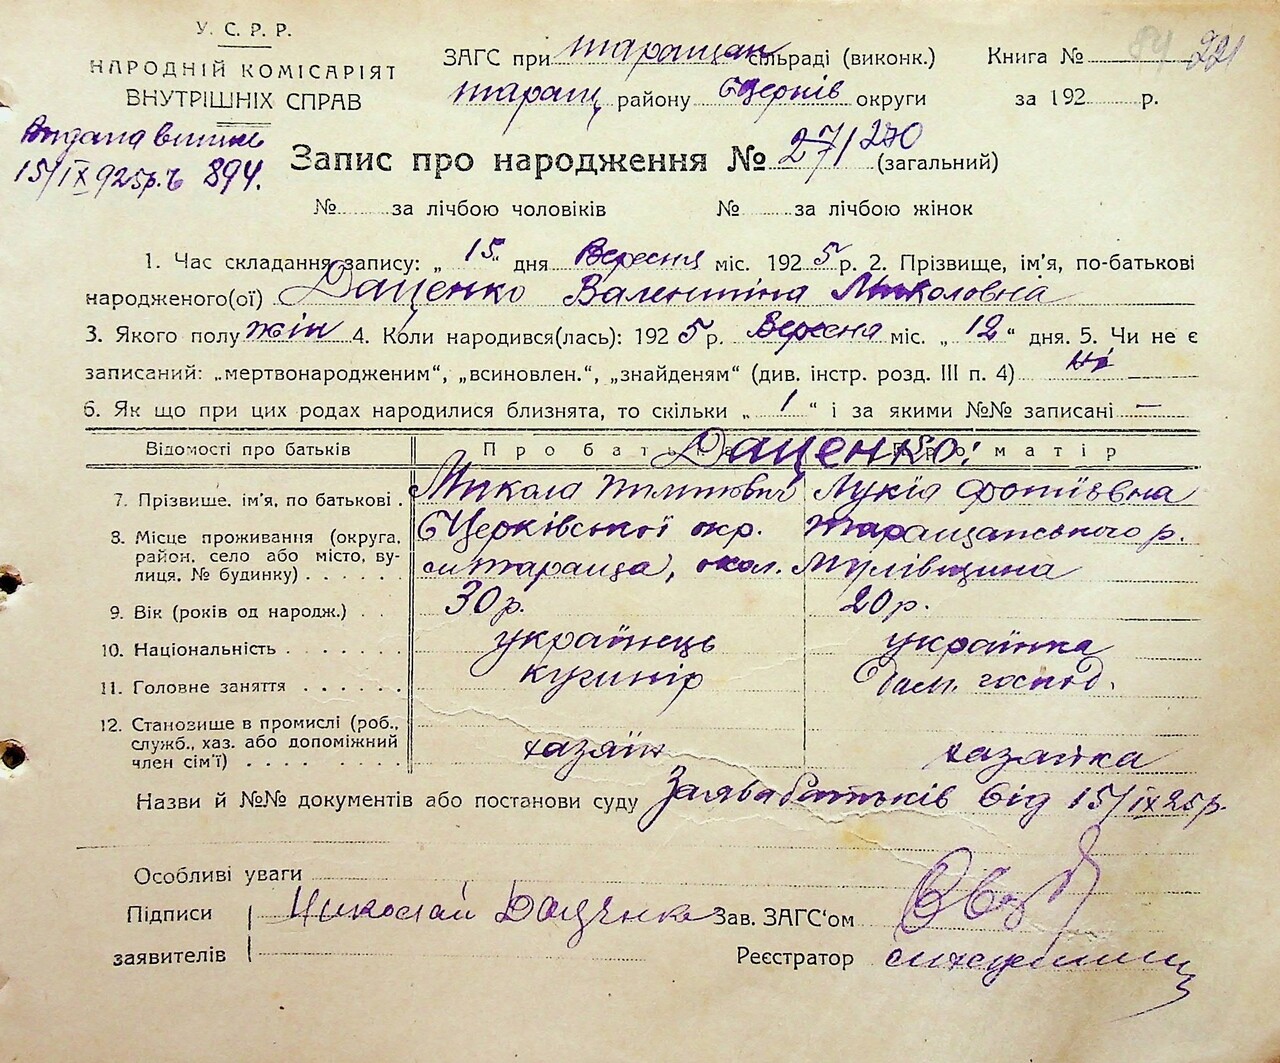 У. С. Р. Р.
НАРОДНІЙ КОМІСАРІЯТ
ВНУТРІШНІХ СПРАВ
ЗАГС при Таращан сільраді (виконк.)
Таращ району БЦерків округи
Книга № 221
за 192 р.
15/IX 925р. 894.
Запис про народження № 271/270 (загальний)
№ за лічбою чоловіків № за лічбою жінок
1. Час складання запису: „ 15 “ дня Вересня міс. 192 5 р. 2. Прізвище, ім'я, по-батькові
народженого(ої) Даценко Валентіна Миколовна
3. Якого полу жін 4. Коли народився(лась): 192 5 р. Вересня міс. „ 12 “ дня. 5. Чи не є
записаний: „мертвонародженим“, „всиновлен.“, „знайденям“ (див. інстр. розд. III п. 4) Ні
6. Як що при цих родах народилися близнята, то скільки „ 1 “ і за якими №№ записані —
Відомості про батьків Про матір
Даценко:
7. Прізвище, ім'я, по батькові . Микола Лукія Фотіївна
8. Місце проживання (округа, БЦерківської окр. Таращанського р.
район, село або місто, ву-
лиця, № будинку) . . . . . . м Тараща, окол. Мулівщина
9. Вік (років од народж.) . . . 30 р. 20 р.
10. Національність . . . . . . . українець українка
11. Головне заняття . . . . . . кушнір дом. господ.
12. Становище в промислі (роб.,
служб., хаз. або допоміжний хазяїн хазяйка
член сім'ї) . . . . . . . . .
Назви й №№ документів або постанови суду Заява батьків від 15/IX 25 р.
Особливі уваги
Підписи Николай Даценко Зав. ЗАГС'ом
заявителів Реєстратор